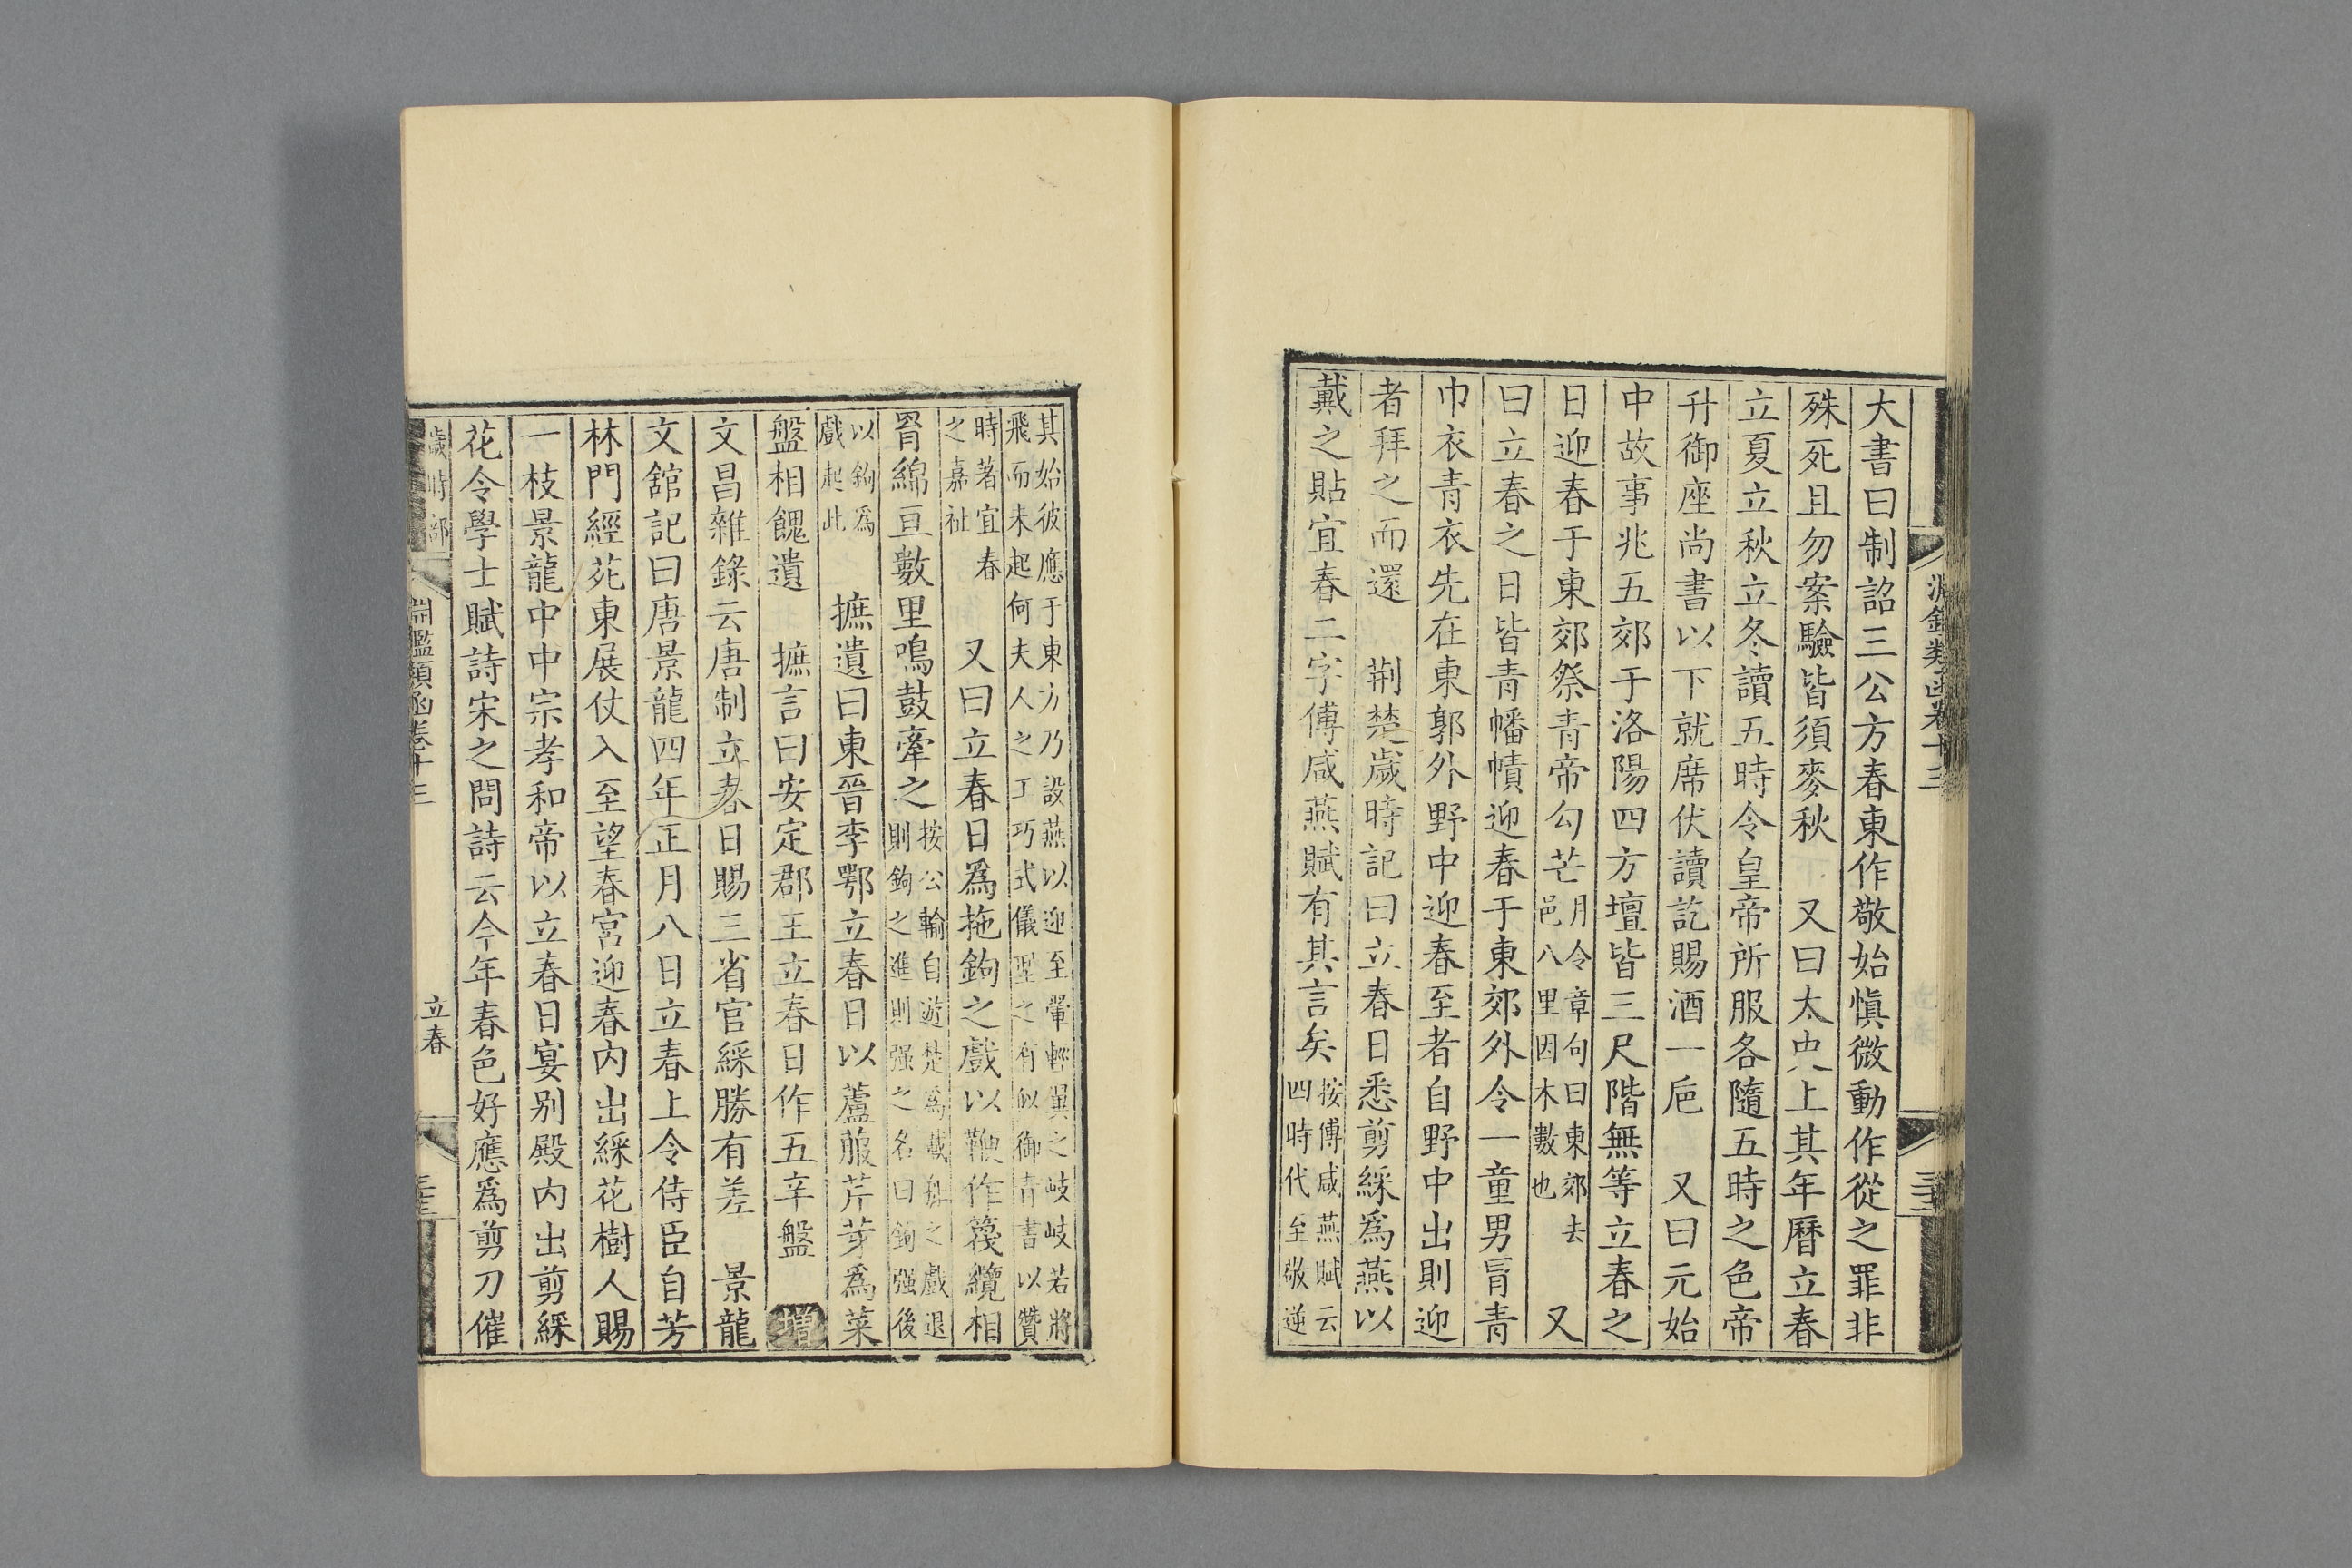 大書曰制詔三公方春東作敬始愼微動作從之罪非
殊死且勿案驗皆須麥秋　又曰太史上其年曆立春
立夏立秋立冬讀五時令皇帝所服各隨五時之色帝
升御座尚書以下就席伏讀訖賜酒一巵　又曰元始
中故事兆五郊于洛陽四方壇皆三尺階無等立春之
日迎春于東郊祭青帝勾芒月令章句曰東郊去邑八里因木數也　又
曰立春之日皆青幡幘迎春于東郊外令一童男冐青
巾衣青衣先在東郭外野中迎春至者自野中出則迎
者拜之而還　荆楚歲時記曰立春日悉剪綵爲燕以
戴之貼宜春二字傅咸燕賦有其言矣按傅咸燕賦云四時代至敬逆
淵鑑類函卷十三
其始彼應于東方乃設燕以迎至翬輕翼之岐岐若將飛而未起何夫人之工巧式儀形之有似御青書以贊
時著宜春之嘉祉　又曰立春日爲拖鉤之戲以䩕作篾纜相
罥綿亘數里鳴鼓牽之按公輸自遊楚爲載舟之戲退則鉤之進則强之名曰鉤强後
以鉤爲戲起此　摭遺曰東晉李鄂立春日以蘆菔芹芽爲菜
盤相餽遺　摭言曰安定郡王立春日作五辛盤　增
文昌雜錄云唐制立春日賜三省官綵勝有差　景龍
文舘記曰唐景龍四年正月八日立春上令侍臣自芳
林門經苑東展仗入至望春宮迎春内出綵花樹人賜
一枝景龍中中宗孝和帝以立春日宴别殿内出剪綵
花令學士賦詩宋之問詩云今年春色好應爲剪刀催
歲時部　淵鑑類函卷十三　立春